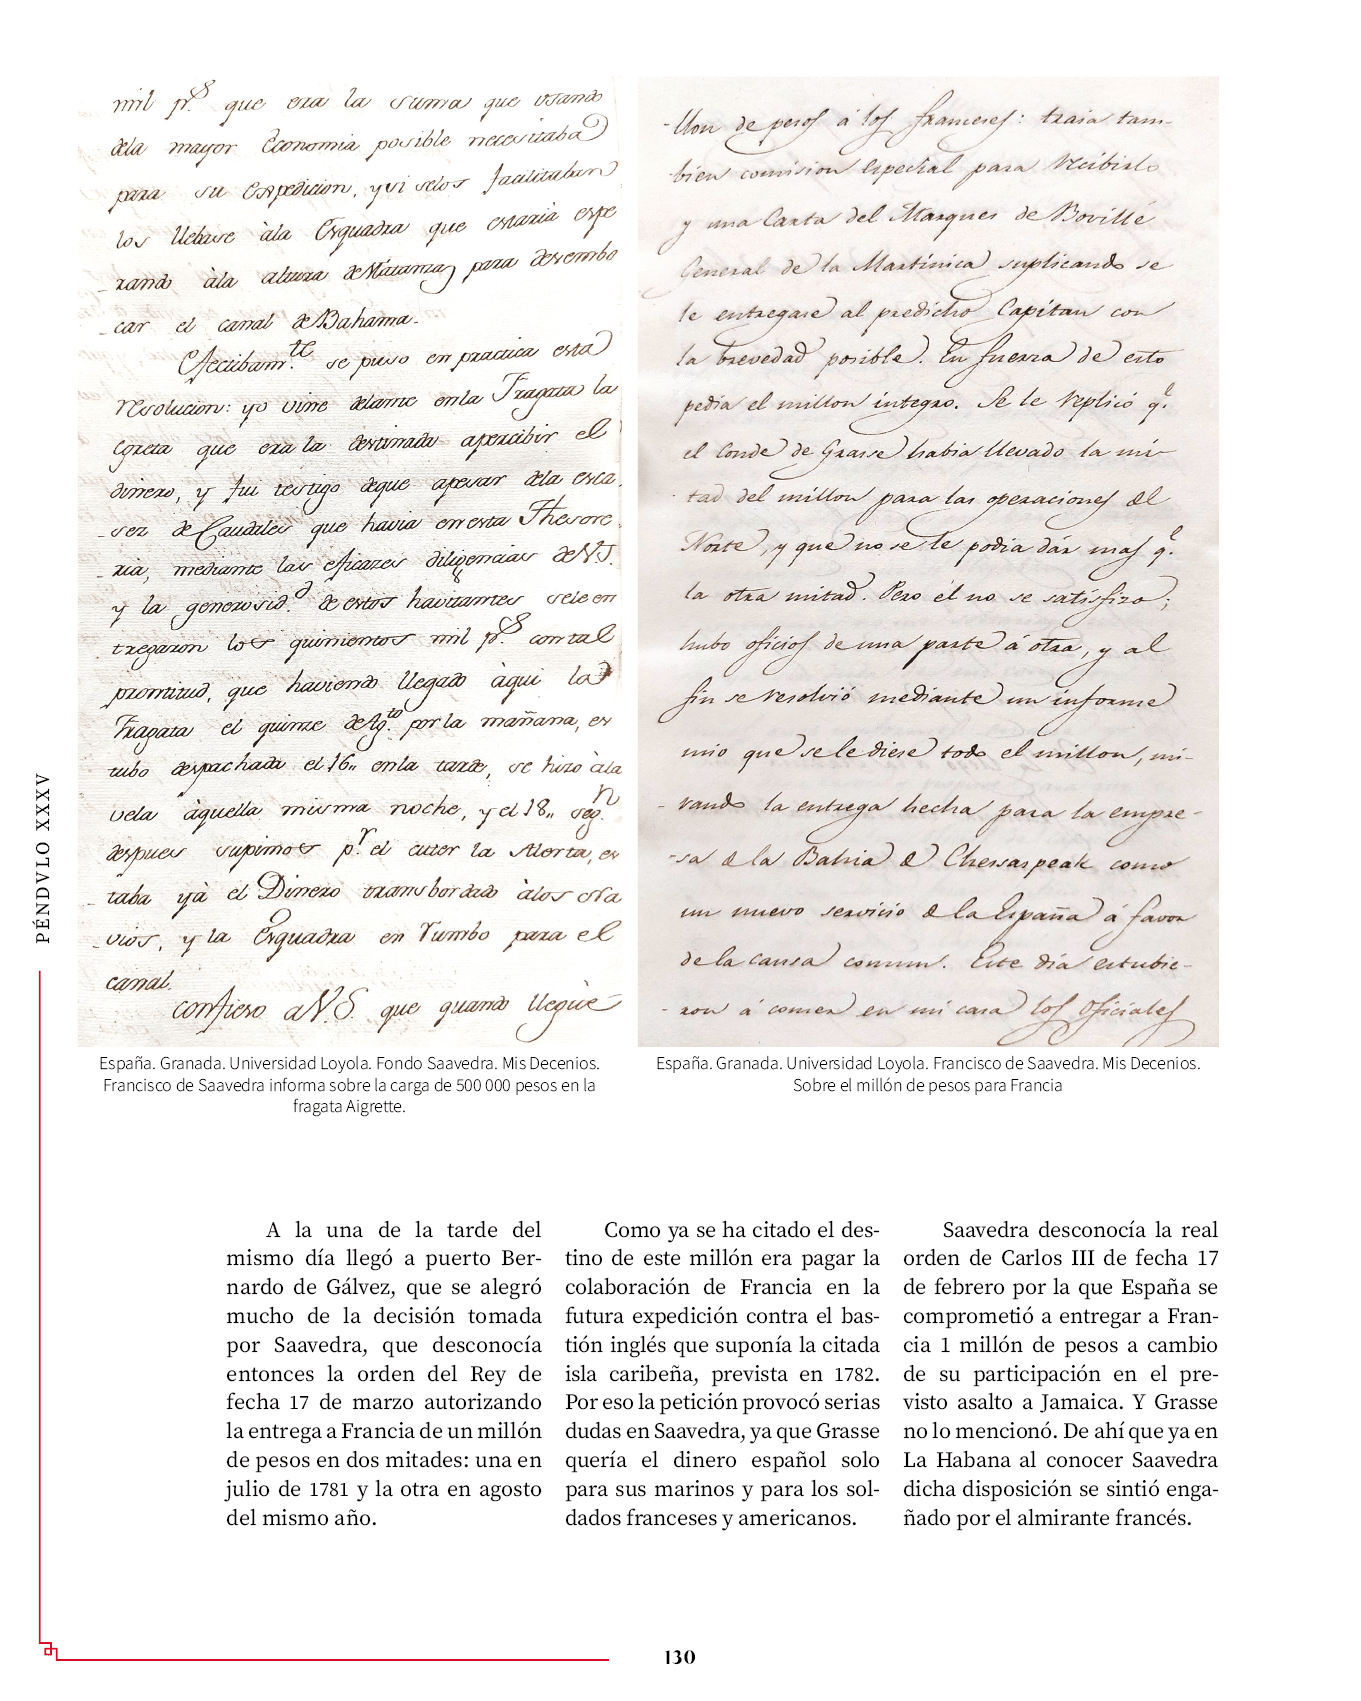 mil p.s que era la suma que usando
dela mayor Economia posible necesitaba
para su Expedicion, y si selos facilitaban
los llebase àla Esquadra que estaria espe
rando àla altura de Matanzas para desembo
car el canal de Bahama.
Efectibam.te se puso en practica esta
resolucion: yo vine delante en la Fragata la
Egreta que era la destinada apercibir el
dinero, y fui testigo deque apesar dela esca
sez de Caudales que havia en esta Thesore
ria, mediante las eficazes diligencias de V.S.
y la generosid.d de estos havitantes sele en
tregaron los quinientos mil p.s con tal
prontitud, que haviendo llegado àqui la
Fragata el quinze de Ag.to por la mañana, es
tubo despachada el 16,, en la tarde, se hizo àla
vela àquella misma noche, y el 18,, seg.n
despues supimos p.r el cuter la Alerta, es
taba yà el Dinero transbordado àlos Na
vios, y la Esquadra en rumbo para el
canal.
confieso a V.S. que quando lleguè
llon de pesos á los franceses: traia tam-
bien comision especial para recibirlo
y una Carta del Marques de Bovillé
General de la Martinica suplicando se
le entregase al predicho Capitan con
la brevedad posible. En fuerza de esto
pedia el millon integro. Se le replicó q.e
el Conde de Grasse habia llevado la mi-
tad del millon para las operaciones del
Norte, y que no se le podia dár mas q.e
la otra mitad. Pero él no se satisfizo;
hubo oficios de una parte á otra, y al
fin se resolvió mediante un informe
mio que se le diese todo el millon, mi-
rando la entrega hecha para la empre-
sa de la Bahia de Chessaspeak como
un nuevo servicio de la España á favor
de la causa comun. Este dia estubie-
ron á comer en mi casa los Oficiales
España. Granada. Universidad Loyola. Fondo Saavedra. Mis Decenios.
Francisco de Saavedra informa sobre la carga de 500 000 pesos en la
fragata Aigrette.
España. Granada. Universidad Loyola. Francisco de Saavedra. Mis Decenios.
Sobre el millón de pesos para Francia
PÉNDVLO XXXV
A la una de la tarde del
mismo día llegó a puerto Ber-
nardo de Gálvez, que se alegró
mucho de la decisión tomada
por Saavedra, que desconocía
entonces la orden del Rey de
fecha 17 de marzo autorizando
la entrega a Francia de un millón
de pesos en dos mitades: una en
julio de 1781 y la otra en agosto
del mismo año.
Como ya se ha citado el des-
tino de este millón era pagar la
colaboración de Francia en la
futura expedición contra el bas-
tión inglés que suponía la citada
isla caribeña, prevista en 1782.
Por eso la petición provocó serias
dudas en Saavedra, ya que Grasse
quería el dinero español solo
para sus marinos y para los sol-
dados franceses y americanos.
Saavedra desconocía la real
orden de Carlos III de fecha 17
de febrero por la que España se
comprometió a entregar a Fran-
cia 1 millón de pesos a cambio
de su participación en el pre-
visto asalto a Jamaica. Y Grasse
no lo mencionó. De ahí que ya en
La Habana al conocer Saavedra
dicha disposición se sintió enga-
ñado por el almirante francés.
130